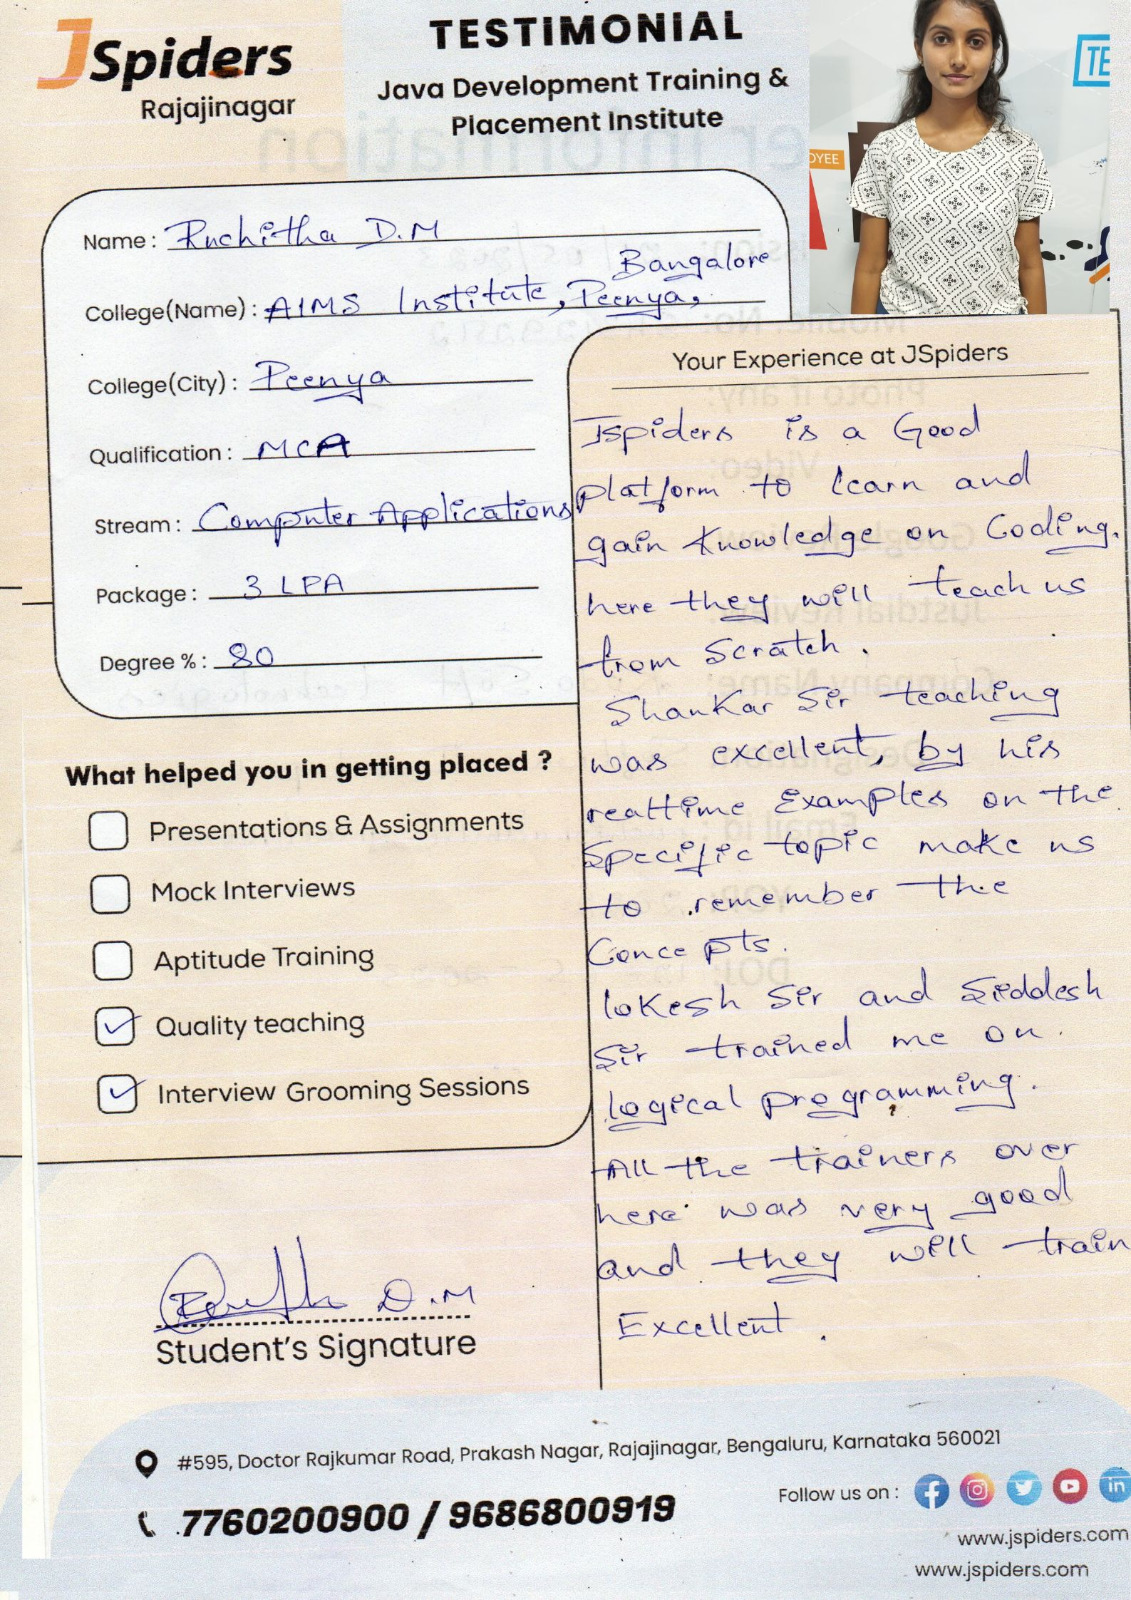 JSpiders
Rajajinagar
TESTIMONIAL
Java Development Training &
Placement Institute
TE
OYEE
Name : Ruchitha D.M
Bangalore
College(Name) : AIMS Institute, Peenya,
College(City) : Peenya
Qualification : MCA
Stream : Computer Applications
Package : 3 LPA
Degree % : 80
What helped you in getting placed ?
Presentations & Assignments
Mock Interviews
Aptitude Training
Quality teaching
Interview Grooming Sessions
Your Experience at JSpiders
Jspiders is a Good
platform to learn and
gain knowledge on Coding.
here they will teach us
from Scratch.
Shankar Sir teaching
was excellent, by his
realtime Examples on the
Specific topic make us
to remember the
Concepts.
lokesh Sir and Siddesh
Sir trained me on
logical programming.
All the trainers over
here was very good
and they will train
Excellent.
D.M
Student's Signature
#595, Doctor Rajkumar Road, Prakash Nagar, Rajajinagar, Bengaluru, Karnataka 560021
7760200900 / 9686800919
Follow us on :
www.jspiders.com
www.jspiders.com